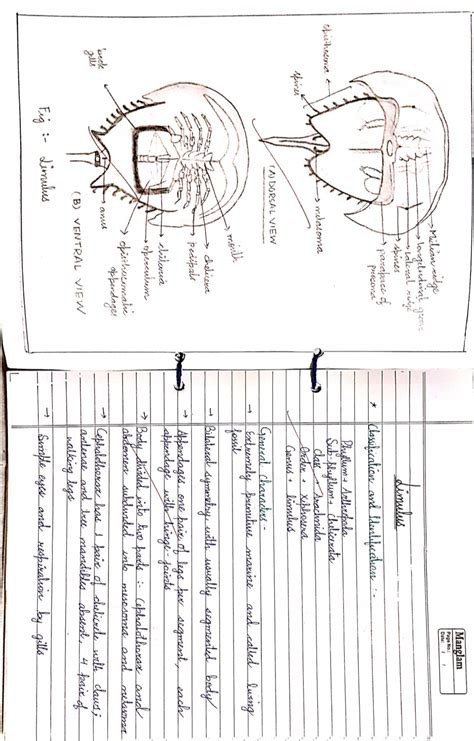 Median ridge
longitudinal groove
lateral ridge
spines
parapare of
prosoma
ophithosoma
spines
metasoma
(A) DORCAL VIEW
mouth
chelicera
Pedipals
chilaria
operculum
ophisthosomatic
appendages
anus
book
gills
(B) VENTRAL VIEW
Fig :- Limulus
Manglam
Page No.:
Date: / /
Limulus
* Classification and Identification :-
Phyllum → Arthropoda
Sub-Phyllum → Chelicerata
Class → Arachnida
Order → Xiphosura
Genus → Limulus
General characters :-
→ Extremely primitive marine and called living
fossil
→ Bilateral symmetry with usually segmented body
→ Appendages one pair of legs per segment, each
appendage with hinge joints
→ Body divided into two parts :- Cephalothorax and
abdomen subdivided into mesosoma and metasoma
→ Cephalothorax has 1 pair of chelicerae with claws;
antenae and true mandibles absent, 4 pair of
walking legs
→ Simple eyes and respiration by gills